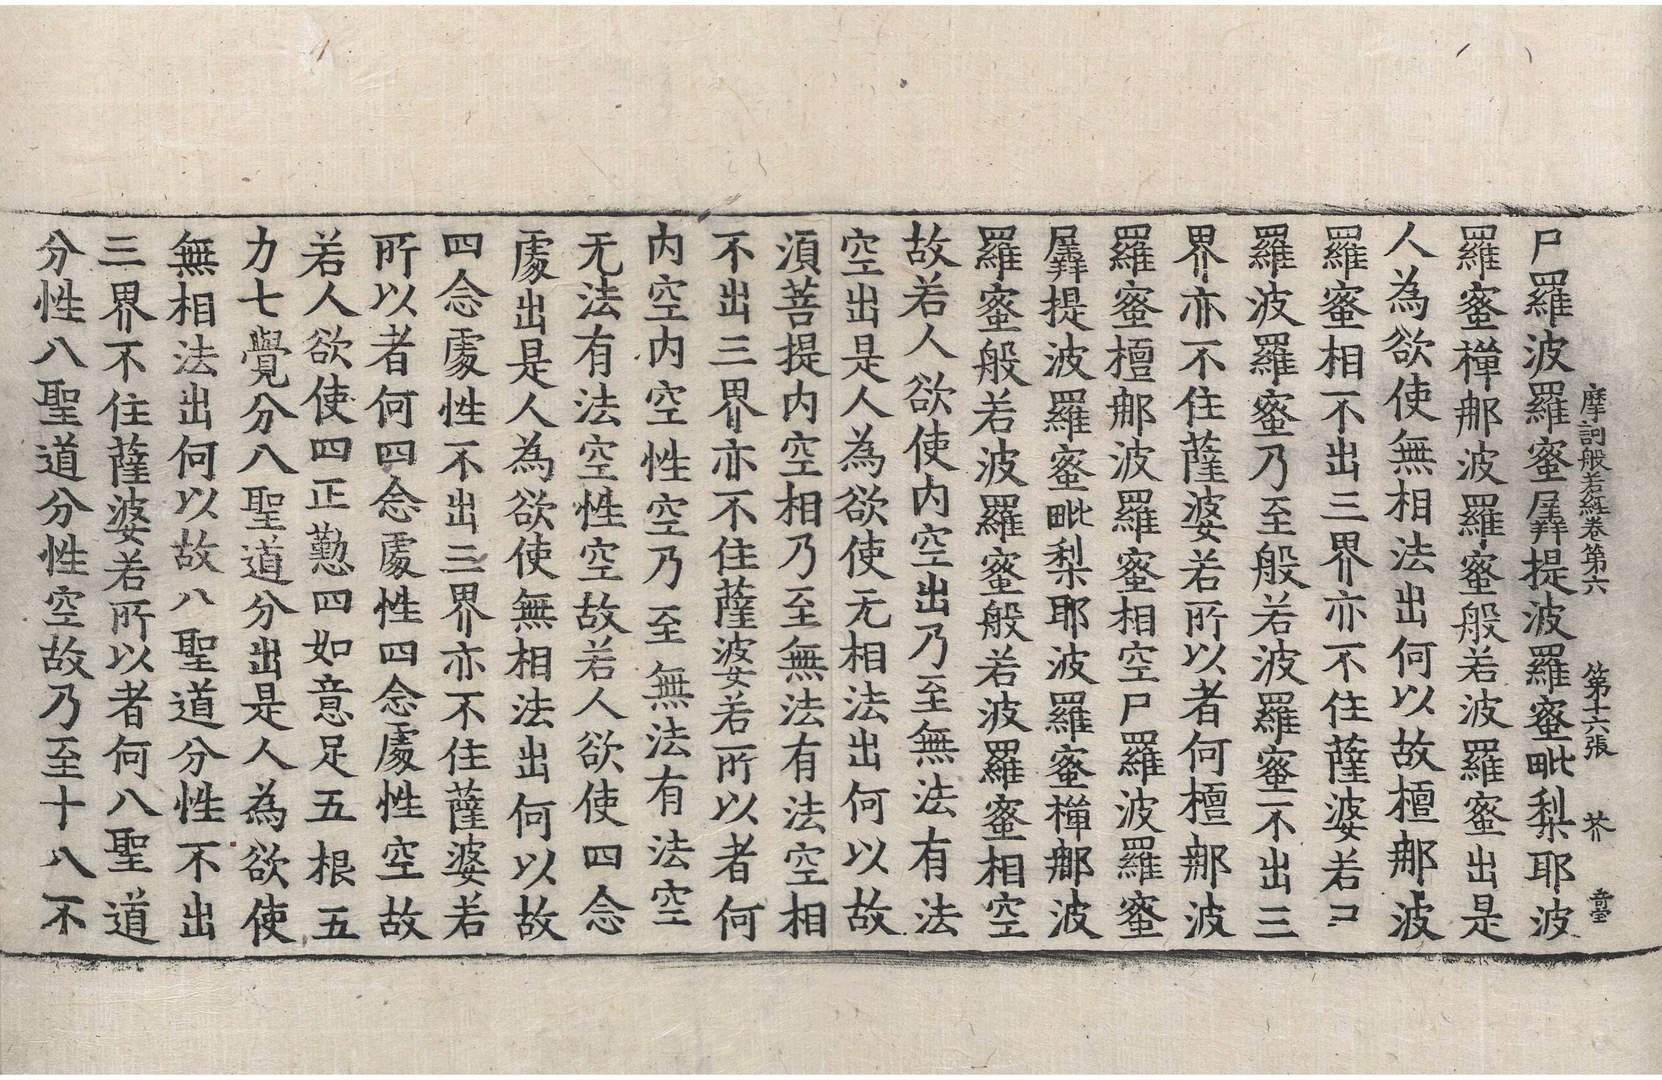 摩訶般若經卷第六 第十六張 芥
尸羅波羅蜜羼提波羅蜜毗梨耶波
羅蜜禪那波羅蜜般若波羅蜜出是
人為欲使無相法出何以故檀那波
羅蜜相不出三界亦不住薩婆若尸
羅波羅蜜乃至般若波羅蜜不出三
界亦不住薩婆若所以者何檀那波
羅蜜檀那波羅蜜相空尸羅波羅蜜
羼提波羅蜜毗梨耶波羅蜜禪那波
羅蜜般若波羅蜜般若波羅蜜相空
故若人欲使內空出乃至無法有法
空出是人為欲使无相法出何以故
須菩提內空相乃至無法有法空相
不出三界亦不住薩婆若所以者何
內空內空性空乃至無法有法空
无法有法空性空故若人欲使四念
處出是人為欲使無相法出何以故
四念處性不出三界亦不住薩婆若
所以者何四念處性四念處性空故
若人欲使四正懃四如意足五根五
力七覺分八聖道分出是人為欲使
無相法出何以故八聖道分性不出
三界不住薩婆若所以者何八聖道
分性八聖道分性空故乃至十八不